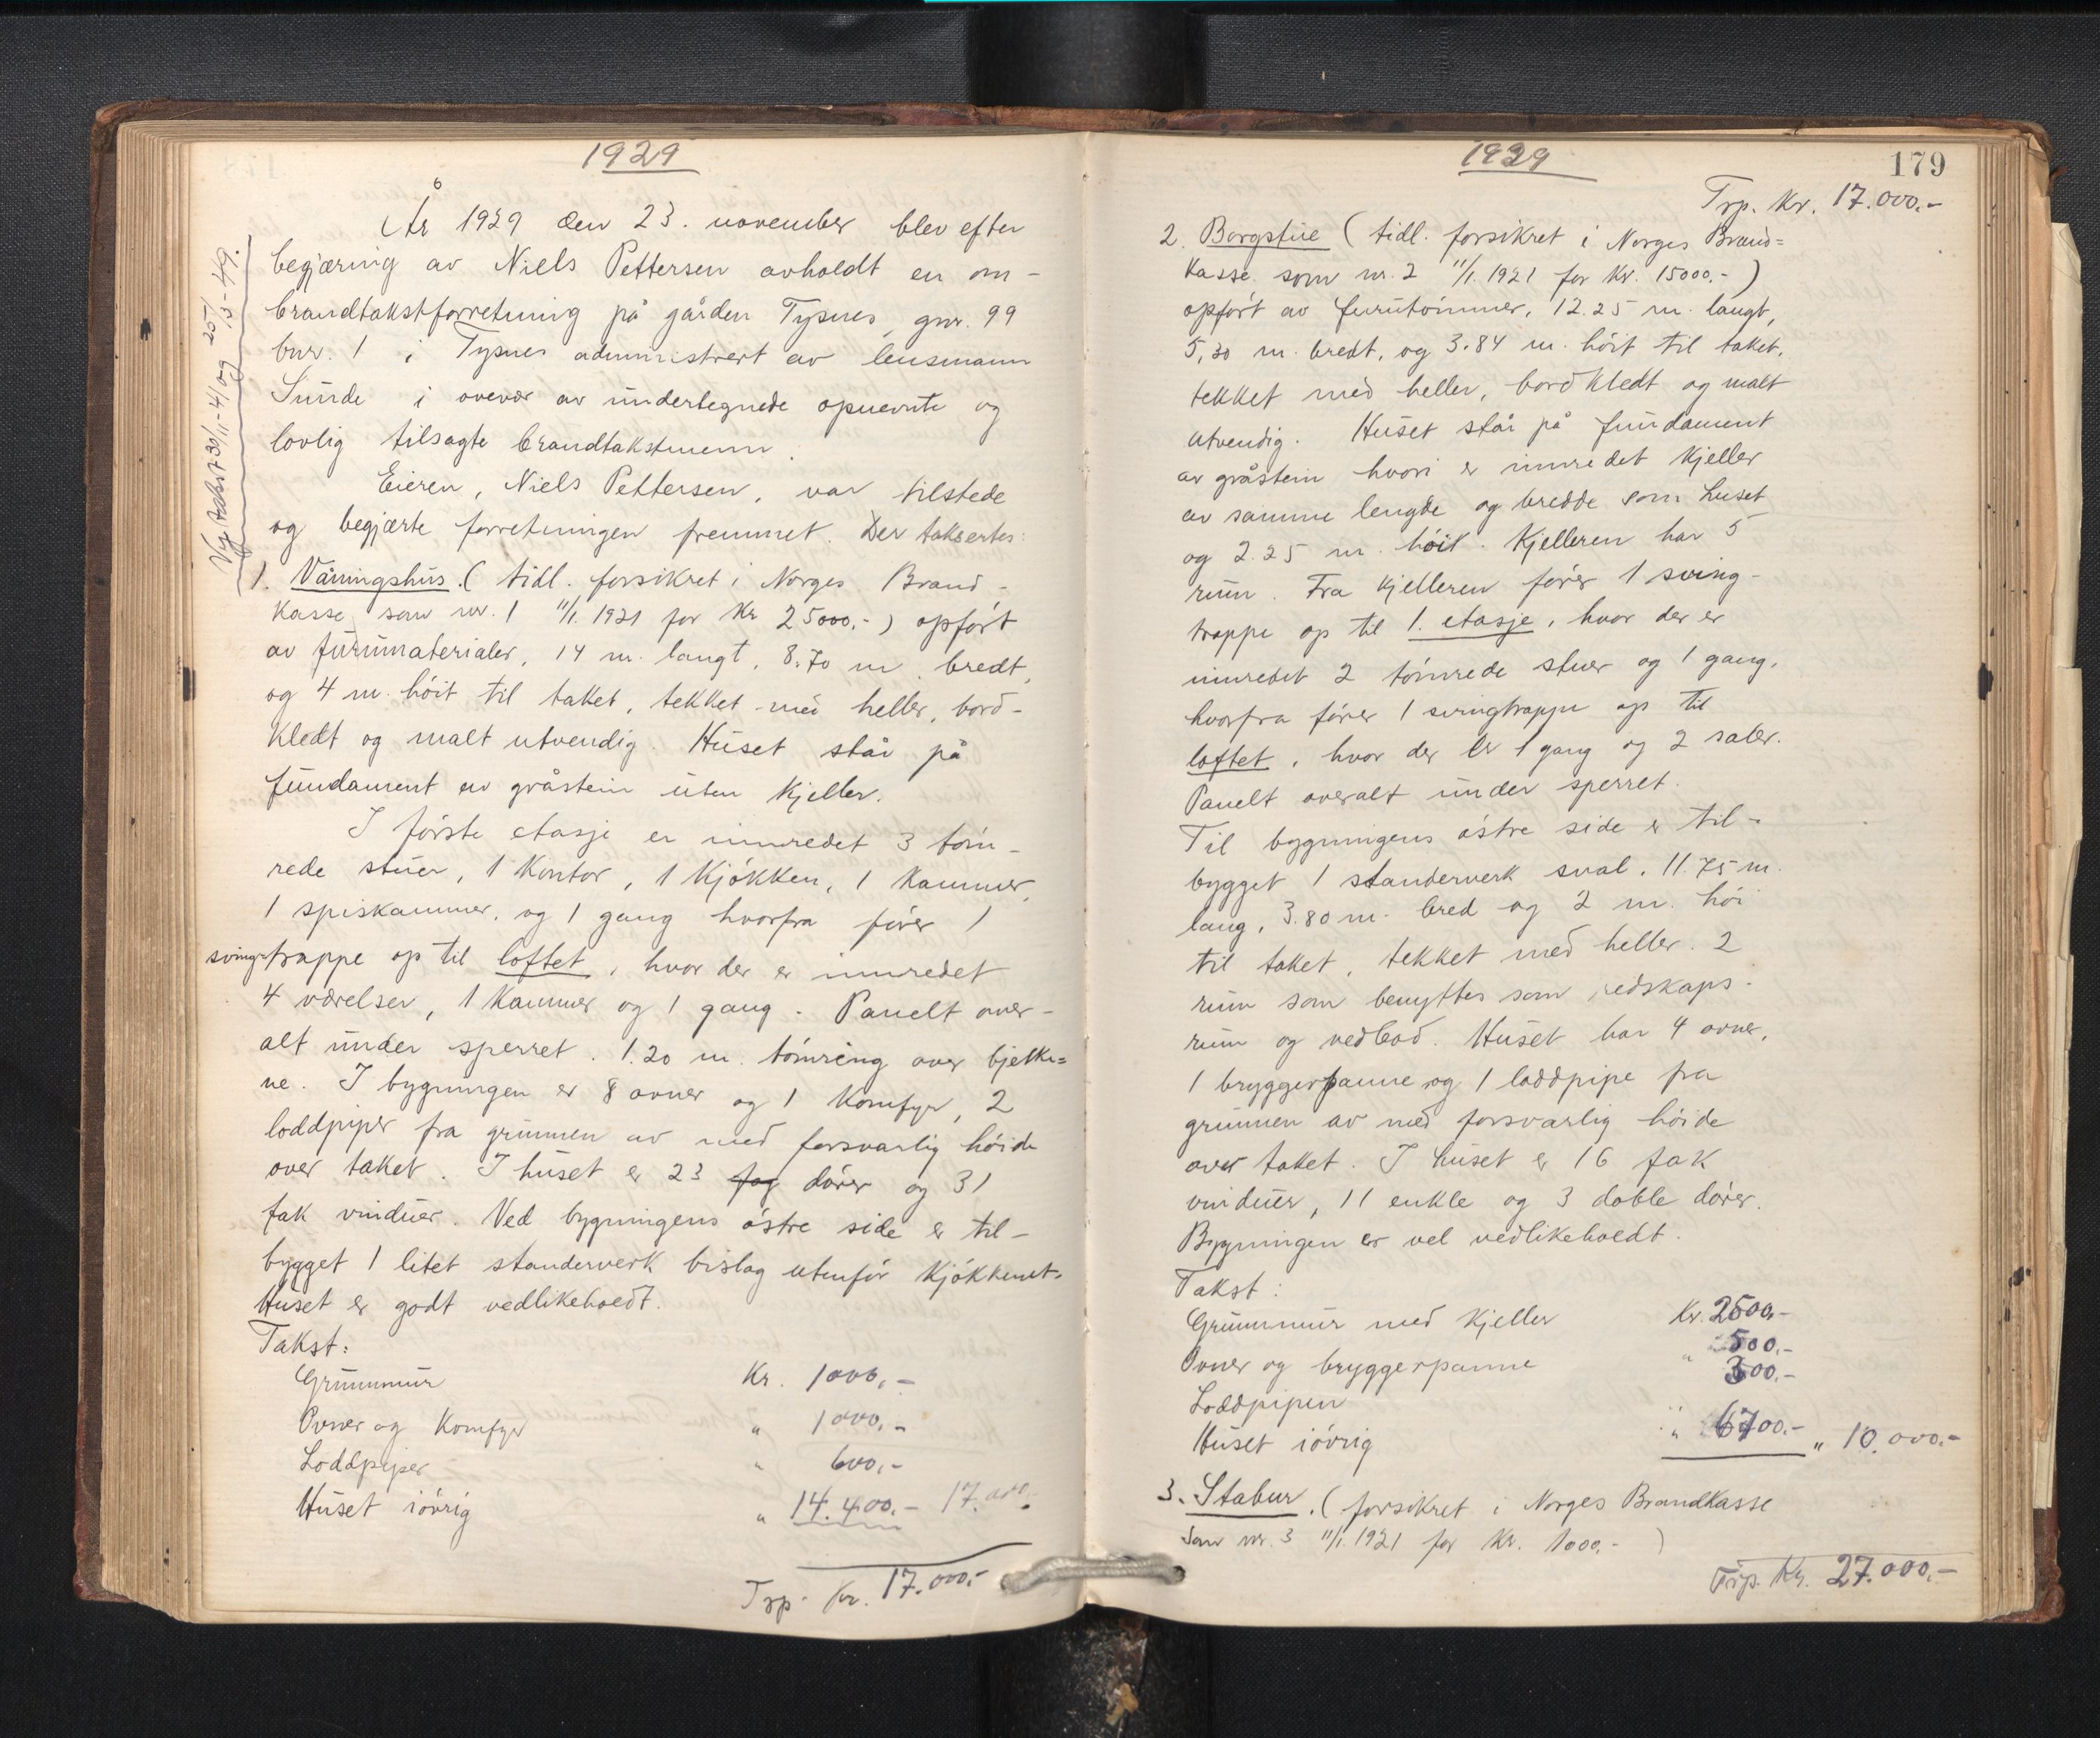 1929
År 1929 den 23. november blev efter
begjæring av Niels Pettersen avholdt en om-
brandtakstforretning på gården Tysnes, gnr. 99
bnr. 1 i Tysnes administrert av lensmann
Sunde i overvær av undertegnede opnevnte og
lovlig tilsagte brandtakstmenn.
Eieren, Niels Pettersen, var tilstede
og begjærte forretningen fremmet. Der taksertes:
1. Våningshus. (tidl. forsikret i Norges Brand-
kasse som nr. 1 11/1. 1921 for Kr 25000,-) opført
av furumaterialer, 14 m. langt, 8.70 m. bredt,
og 4 m. høit til taket, tekket med heller, bord-
kledt og malt utvendig. Huset står på
fundament av gråstein uten kjeller.
I første etasje er innredet 3 tøm-
rede stuer, 1 kontor, 1 kjøkken, 1 kammer,
1 spiskammer, og 1 gang hvorfra fører 1
svingtrappe op til loftet, hvor der er innredet
4 værelser, 1 kammer og 1 gang. Panelt over-
alt under sperret. 1.20 m. tømring over bjelke=
ne. I bygningen er 8 ovner og 1 komfyr, 2
loddpiper fra grunnen av med forsvarlig høide
over taket. I huset er 23 fag dører og 31
fak vinduer. Ved bygningens østre side er til-
bygget 1 litet standerverk bislag utenfor kjøkkenet.
Huset er godt vedlikeholdt.
Takst:
Grunnmur Kr. 1000,-
Ovner og komfyr " 1000,-
Loddpiper " 600,-
Huset iøvrig " 14.400.- 17.000.-
Trp. Kr. 17.000.-
Ny takst 30/11-41 og 25/3-49.
1929
179
Trp. Kr. 17.000.-
2. Borgstue (tidl. forsikret i Norges Brand=
kasse som nr. 2 11/1. 1921 for Kr. 15000.-)
opført av furutømmer, 12.25 m. langt,
5,30 m. bredt, og 3.84 m. høit til taket,
tekket med heller, bordkledt og malt
utvendig. Huset står på fundament
av gråstein hvori er innredet kjeller
av samme lengde og bredde som huset
og 2.25 m. høit. Kjelleren har 5
rum. Fra kjelleren fører 1 sving-
trappe op til 1. etasje, hvor der er
innredet 2 tømrede stuer og 1 gang,
hvorfra fører 1 svingtrappe op til
loftet, hvor der er 1 gang og 2 saler.
Panelt overalt under sperret.
Til bygningens østre side er til-
bygget 1 standerverk sval, 11.75 m.
lang, 3.80 m. bred og 2 m. høi
til taket, tekket med heller. 2
rum som benyttes som redskaps-
rum og vedbod. Huset har 4 ovner,
1 bryggerpanne og 1 loddpipe fra
grunnen av med forsvarlig høide
over taket. I huset er 16 fak
vinduer, 11 enkle og 3 doble dører.
Bygningen er vel vedlikeholdt.
Takst:
Grunnmur med kjeller Kr. 2500,-
Ovner og bryggerpanne " 500.-
Loddpipen " 300.-
Huset iøvrig " 6700.- " 10.000.-
3. Stabur. (forsikret i Norges Brandkasse
som nr. 3 11/1. 1921 for Kr. 1000.-)
Trp. Kr. 27.000.-